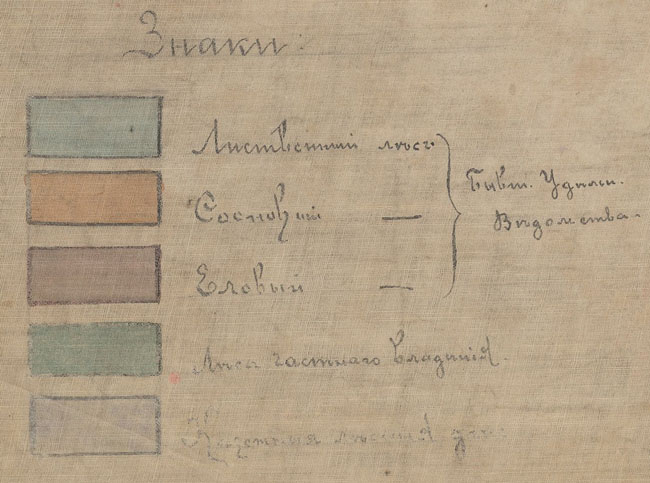 Знаки:
Лиственный лѣсъ
Сосновый —
Еловый —
Бывш. Удѣльн.
Вѣдомства.
Лѣса частнаго владѣнія.
Казенныя лѣсныя